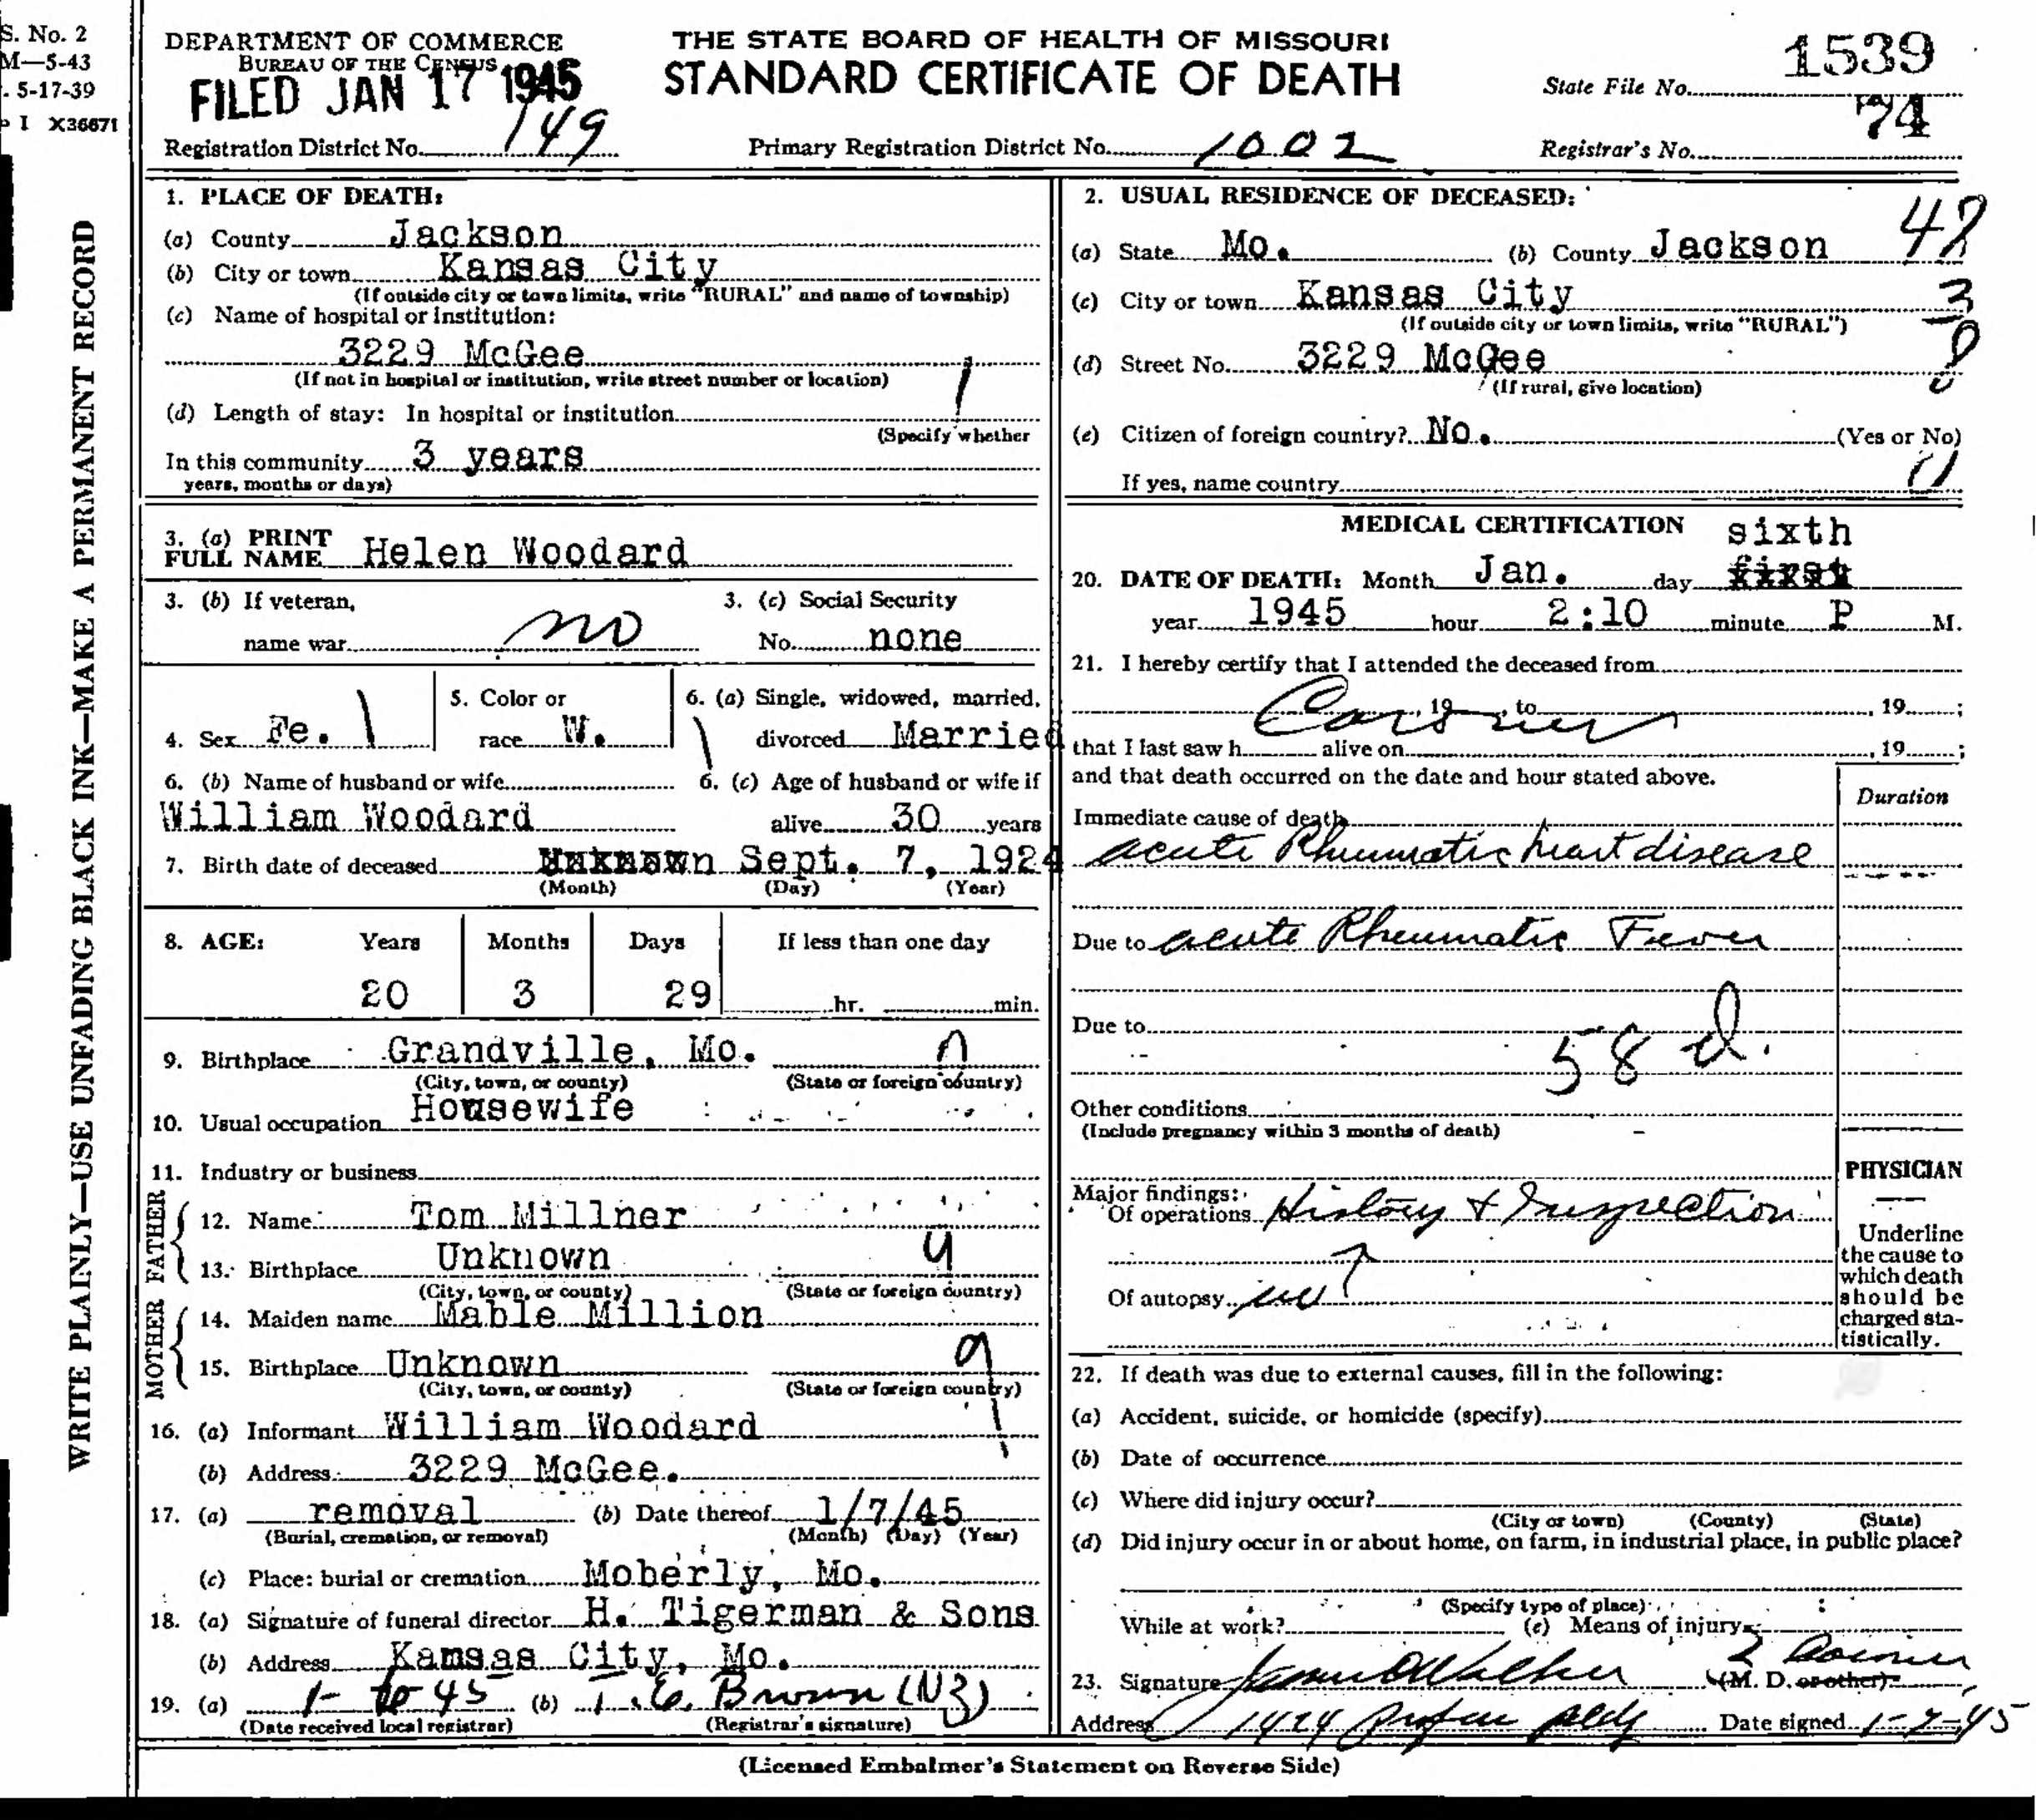 S. No. 2
M—5-43
. 5-17-39
P I X36671
WRITE PLAINLY—USE UNFADING BLACK INK—MAKE A PERMANENT RECORD
DEPARTMENT OF COMMERCE
BUREAU OF THE CENSUS
FILED JAN 17 1945
THE STATE BOARD OF HEALTH OF MISSOURI
STANDARD CERTIFICATE OF DEATH
State File No. 1539
Registration District No. 149
Primary Registration District No. 1002
Registrar's No. 74
1. PLACE OF DEATH:
(a) County Jackson
(b) City or town Kansas City
(If outside city or town limits, write "RURAL" and name of township)
(c) Name of hospital or institution:
3229 McGee
(If not in hospital or institution, write street number or location)
(d) Length of stay: In hospital or institution
(Specify whether
In this community 3 years
years, months or days)
2. USUAL RESIDENCE OF DECEASED:
(a) State Mo. (b) County Jackson 48
(c) City or town Kansas City 3
(If outside city or town limits, write "RURAL") 8
(d) Street No. 3229 McGee
(If rural, give location)
(e) Citizen of foreign country? No. (Yes or No)
If yes, name country
3. (a) PRINT FULL NAME Helen Woodard
3. (b) If veteran, name war no
3. (c) Social Security No. none
4. Sex Fe. 1
5. Color or race W.
6. (a) Single, widowed, married, divorced Married
6. (b) Name of husband or wife
William Woodard
6. (c) Age of husband or wife if alive 30 years
7. Birth date of deceased Unknown Sept. 7, 1924
(Month) (Day) (Year)
8. AGE: Years Months Days If less than one day
20 3 29 hr. min.
9. Birthplace Grandville, Mo.
(City, town, or county) (State or foreign country)
10. Usual occupation Housewife
11. Industry or business
FATHER
12. Name Tom Millner
13. Birthplace Unknown 9
(City, town, or county) (State or foreign country)
MOTHER
14. Maiden name Mable Million
15. Birthplace Unknown 9
(City, town, or county) (State or foreign country)
16. (a) Informant William Woodard
(b) Address 3229 McGee.
17. (a) removal (b) Date thereof 1/7/45
(Burial, cremation, or removal) (Month) (Day) (Year)
(c) Place: burial or cremation Moberly, Mo.
18. (a) Signature of funeral director H. Tigerman & Sons
(b) Address Kansas City, Mo.
19. (a) 1- 45 (b) T. E. Brown
(Date received local registrar) (Registrar's signature)
MEDICAL CERTIFICATION
sixth
20. DATE OF DEATH: Month Jan. day first
year 1945 hour 2:10 minute P M.
21. I hereby certify that I attended the deceased from
Coroner , 19 , to , 19 ;
that I last saw h alive on , 19 ;
and that death occurred on the date and hour stated above.
Duration
Immediate cause of death
acute Rheumatic heart disease
Due to acute Rheumatic Fever
Due to
58 d.
Other conditions
(Include pregnancy within 3 months of death)
PHYSICIAN
Major findings:
Of operations History & Inspection
Of autopsy
Underline
the cause to
which death
should be
charged sta-
tistically.
22. If death was due to external causes, fill in the following:
(a) Accident, suicide, or homicide (specify)
(b) Date of occurrence
(c) Where did injury occur?
(City or town) (County) (State)
(d) Did injury occur in or about home, on farm, in industrial place, in public place?
(Specify type of place)
While at work? (e) Means of injury
Coroner
23. Signature Walker (M. D. or other)
Address 1424 Bldg Date signed 1-7-45
(Licensed Embalmer's Statement on Reverse Side)